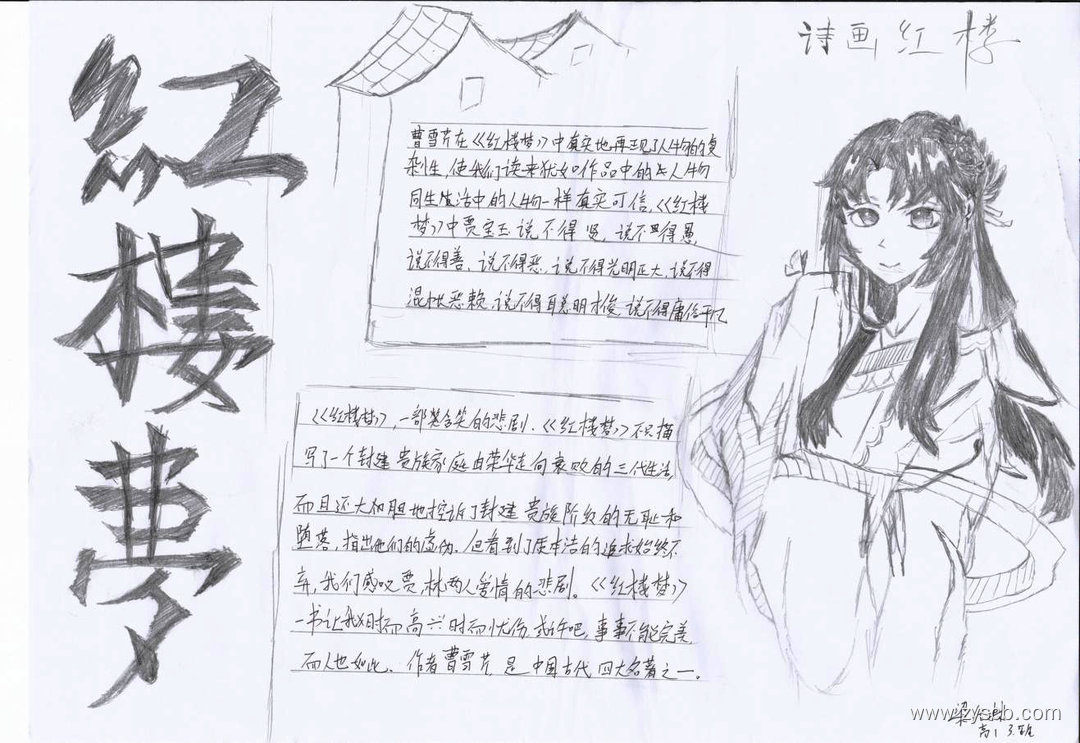 紅樓夢
诗画红楼
曹雪芹在《红楼梦》中真实地再现了人物的复
杂性,使我们读来犹如作品中的人物
同生活中的人物一样真实可信,《红楼
梦》中贾宝玉说不得贤,说不得愚,
说不得善,说不得恶,说不得光明正大,说不得
混帐恶赖,说不得聪明才俊,说不得庸俗平凡
《红楼梦》,一部含笑的悲剧.《红楼梦》不只描
写了一个封建贵族家庭由荣华走向衰败的三代生活,
而且还大胆地控诉了封建贵族阶级的无耻和
堕落,指出他们的虚伪.但看到了质本洁的追求始终不
弃,我们感叹贾,林两人爱情的悲剧。《红楼梦》
一书让我时而高兴时而忧伤,或许吧,事事不能完美,
而人也如此.作者曹雪芹,是中国古代四大名著之一。
www.zysjb.com